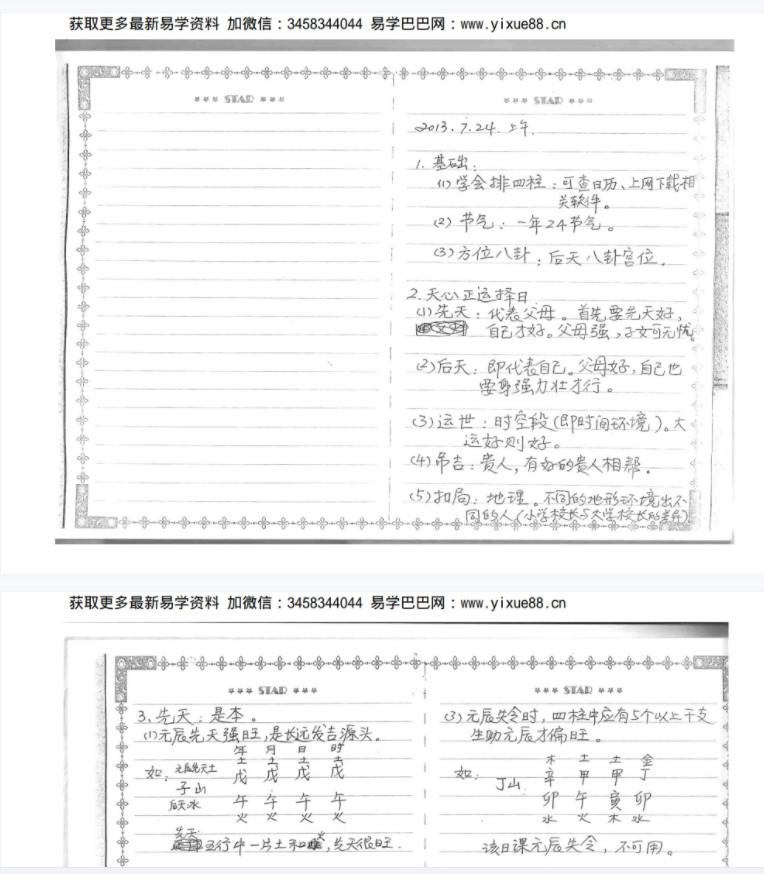 获取更多最新易学资料 加微信：3458344044 易学巴巴网：www.yixue88.cn
*** STAR ***
*** STAR ***
2013.7.24. 上午.
1. 基础：
(1) 学会排四柱：可查日历、上网下载相
关软件。
(2) 节气：一年24节气。
(3) 方位八卦：后天八卦宫位.
2. 天心正运择日
(1) 先天：代表父母。首先要先天好，
自己才好。父母强，子女可无忧。
(2) 后天：即代表自己。父母好，自己也
要身强力壮才行。
(3) 运世：时空段(即时间环境)。大
运好则好。
(4) 吊吉：贵人，有好的贵人相帮。
(5) 扣局：地理。不同的地形环境出不
同的人(小学校长与大学校长的差异)
获取更多最新易学资料 加微信：3458344044 易学巴巴网：www.yixue88.cn
*** STAR ***
3、先天：是本。
(1) 元辰先天强旺，是长远发吉源头。
年 月 日 时
土 土 土 土
如： 元辰先天土 戊 戊 戊 戊
子山
后天水 午 午 午 午
火 火 火 火
先天
五行中一片土和火，先天很旺.
*** STAR ***
(3) 元辰失令时，四柱中应有5个以上干支
生助元辰才偏旺。
木 土 土 金
如： 丁山 辛 甲 甲 丁
卯 午 寅 卯
水 火 木 水
该日课元辰失令，不可用。